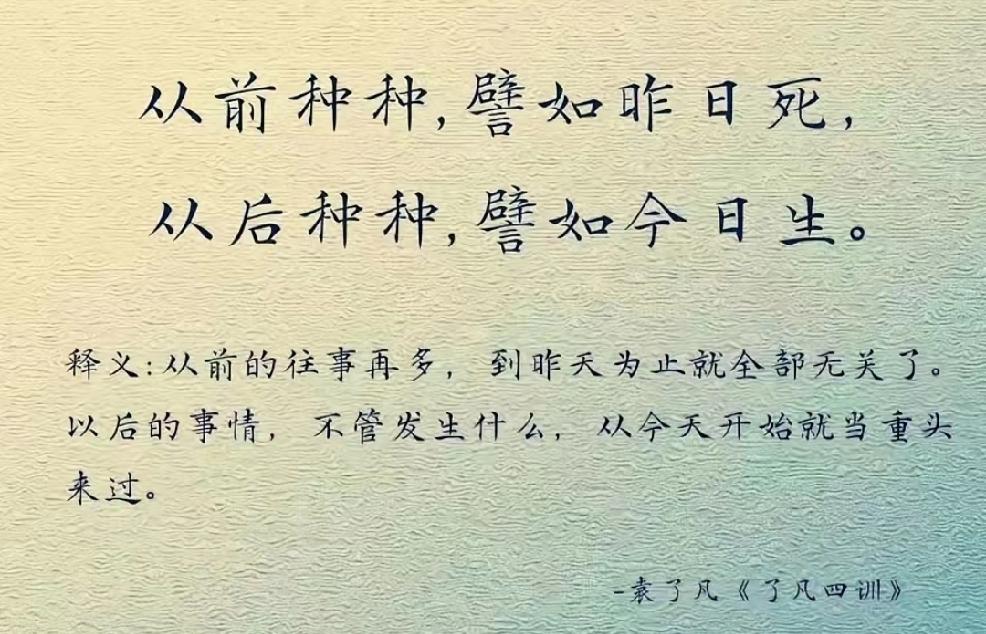 从前种种,譬如昨日死,
从后种种,譬如今日生。
释义:从前的往事再多,到昨天为止就全部无关了。
以后的事情,不管发生什么,从今天开始就当重头
来过。
-袁了凡《了凡四训》